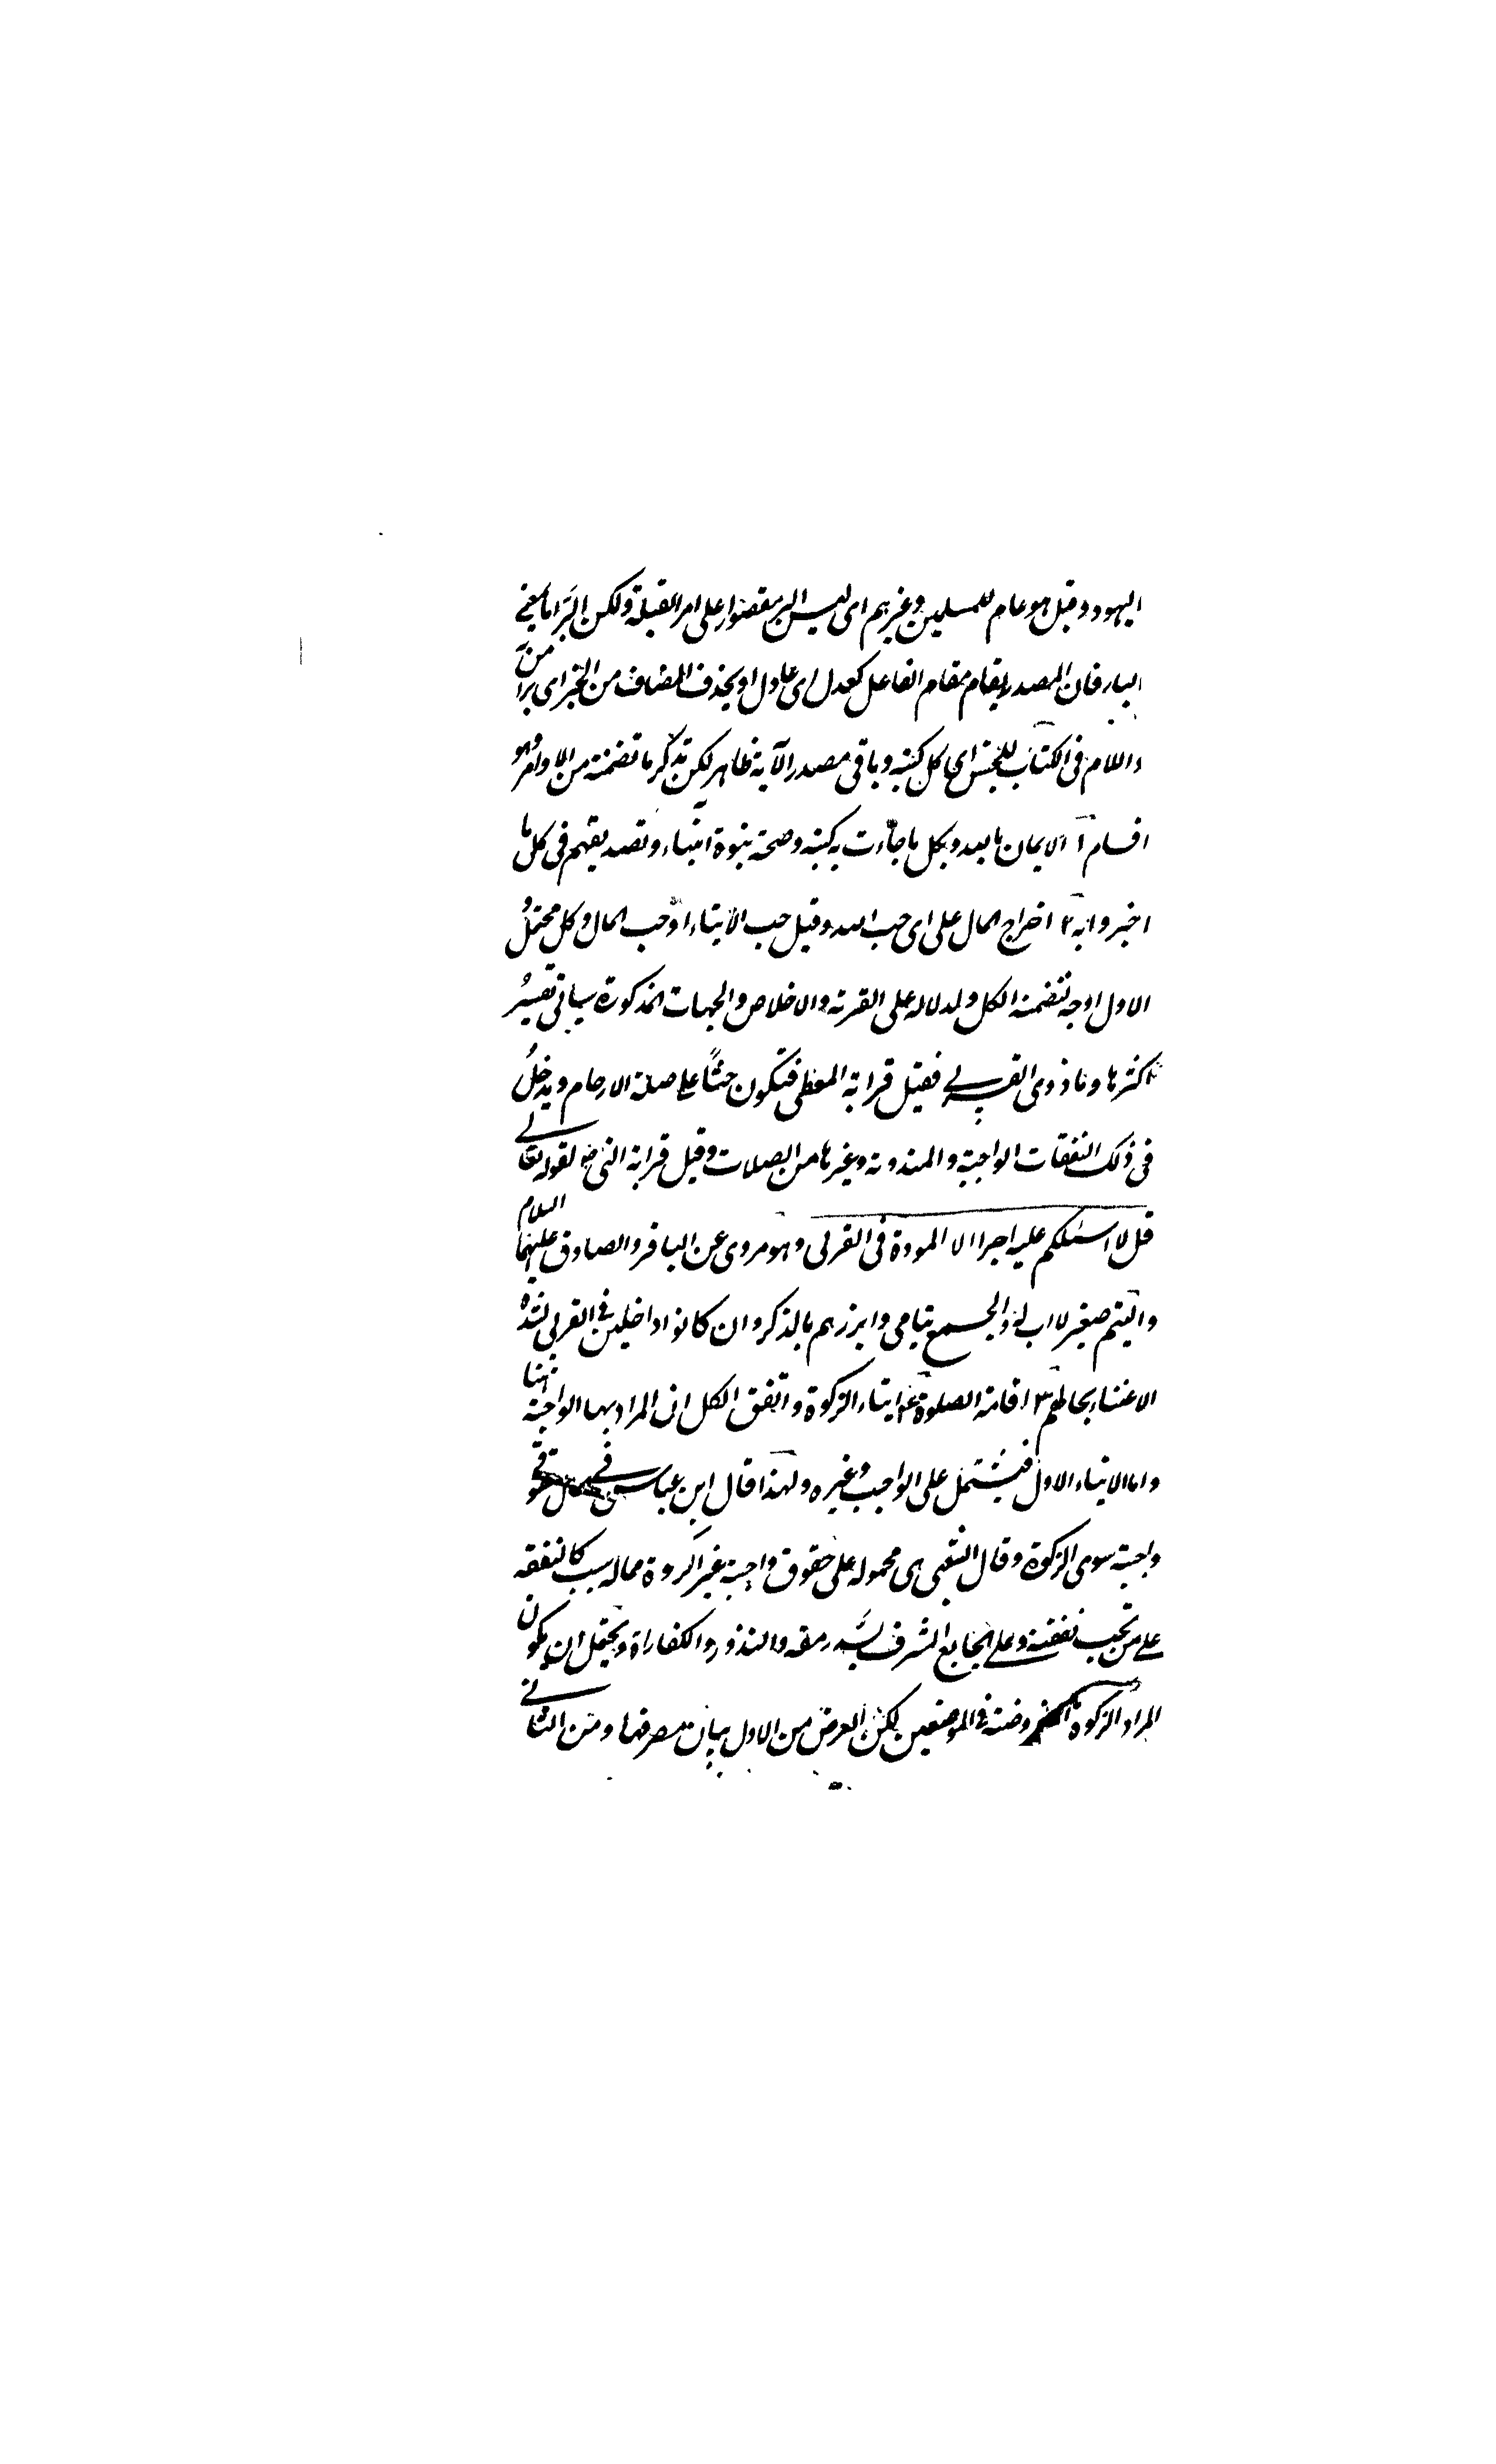 اليهود وقيل هو عام للمسلمين وغيرهم اى ليس البر مقصورا على امر القبلة ولكن البر اما بمعنى
البار فان المصدر يقام مقام الفاعل كعدل اى عادل او بحذف المضاف من الخبر اى بر من
واللام فى الكتاب للجنس اى كل كتبه وباقى مصدر الآية ظاهر لكن تذكر ما تضمنته من الاوامر وهو
اقسام آ الايمان بالله وبكل ما جاءت به كتبه وصحة نبوة انبياءه وتصديقهم فى كل ما
اخبروا به ٢ اخراج المال على اى حب الله وقيل حب الايتاء او حب المال وكل محتمل و
الاول اوجه لتضمنه الكل ولدلالته على القربة والاخلاص والجهات المذكورة سياتى تفسير
اكثرها واما ذوى القربى فقيل قرابة المعطى فتكون حثا على صلة الارحام ويدخل
فى ذلك النفقات الواجبة والمندوبة وغيرها من الصلات وقيل قرابة النبى ص لقوله تعالى
قل لا اسئلكم عليه اجرا الا المودة فى القربى وهو مروى عن الباقر والصادق عليهما السلام
واليتيم صغير لا اب له والجمع يتامى وابرزهم بالذكر وان كانوا داخلين فى القربى لشدة
الاعتناء بحالهم ٣ اقامة الصلوة ۴ ايتاء الزكوة واتفق الكل ان المراد بها الواجبة هنا
واما الايتاء الاول فيشتمل على الواجب وغيره ولهذا قال ابن عباس فى المال حقوق
واجبة سوى الزكوة وقال الشعبى هى محمولة على حقوق واجبة غير الزكوة مما له سبب كالنفقة
على من تجب نفقته وعلى الجايع المشرف لسد رمقه والنذور والكفارات ويحتمل ان يكون
المراد الزكوة المفروضة فى الموضعين لكن الغرض من الاول بيان مصرفها ومن الثانى